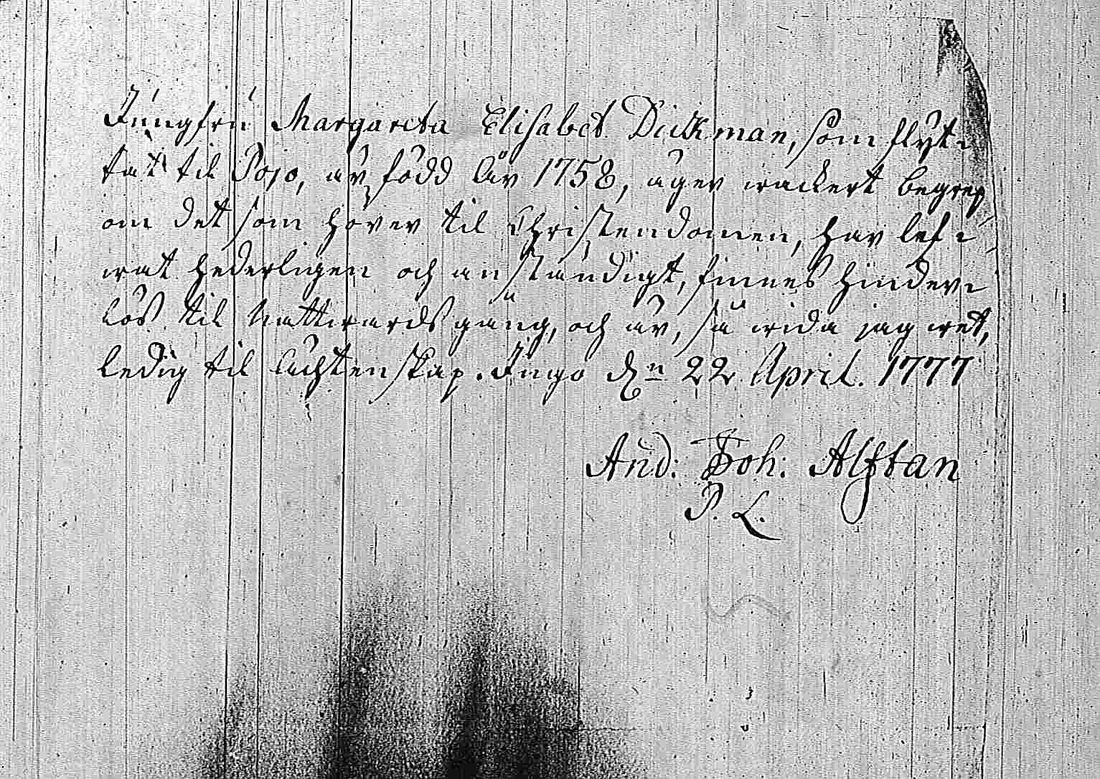 Jungfru Margareta Elisabet Dickman, som flyt-
tat til Pojo, är född År 1758, äger wackert begrep
om det som hörer til Christendomen, har lef-
wat hederligen och anständigt, finnes hinder-
lös til Nattwardsgång, och är, så wida jag wet,
ledig til Ächtenskap. Ingo dn 22 April. 1777
And: Joh: Alftan
P. L.